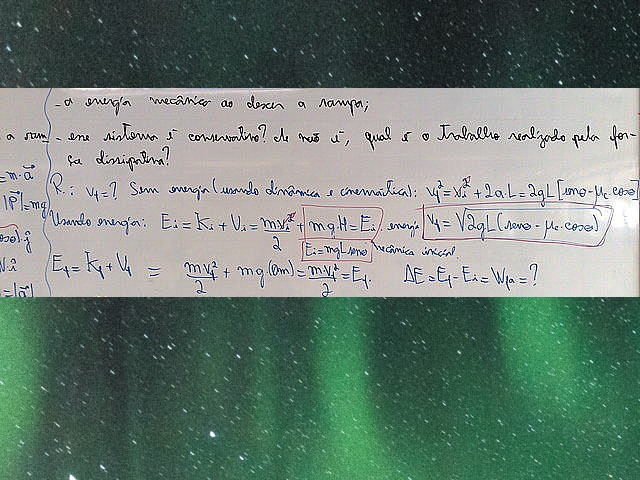 - a energia mecânica ao descer a rampa;
a ram - esse sistema é conservativo? Se não é, qual é o trabalho realizado pela for-
ça dissipativa?
=m·a⃗ R.: v_f=? Sem energia (usando dinâmica e cinemática): v_f²=v_i²+2a·L=2gL[senθ-μc·cosθ]
|P⃗|=mg Usando energia: E_i=K_i+V_i=mv_i²/2+mg·H=E_i energia v_f=√2gL(senθ-μc·cosθ)
cosθ)·ĵ E_i=mgLsenθ mecânica inicial.
E_f=K_f+V_f = mv_f²/2+mg(0m)=mv_f²/2=E_f. ΔE=E_f-E_i=W_fa=?
=|a⃗|